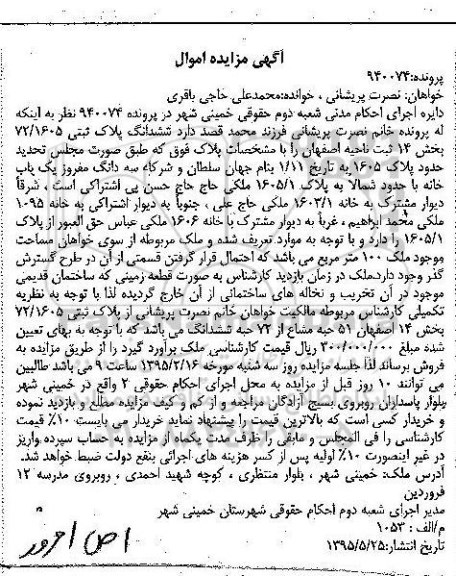 آگهی مزایده اموال
پرونده:۹۴۰۰۷۴
خواهان: نصرت پریشانی ، خوانده:محمدعلی حاجی باقری
دایره اجرای احکام مدنی شعبه دوم حقوقی خمینی شهر در پرونده ۹۴۰۰۷۴ نظر به اینکه
له پرونده خانم نصرت پریشانی فرزند محمد قصد دارد ششدانگ پلاک ثبتی ۷۲/۱۶۰۵
بخش ۱۴ ثبت ناحیه اصفهان را با مشخصات پلاک فوق که طبق صورت مجلس تحدید
حدود پلاک ۱۶۰۵ به تاریخ ۱/۱۱ بنام جهان سلطان و شرکاء سه دانگ مفروز یک باب
خانه با حدود شمالا به پلاک ۱۶۰۵/۱ ملکی حاج حاج حسن پی اشتراکی است ، شرقاً
دیوار مشترک به خانه ۱۶۰۳/۱ ملکی حاج علی ، جنوباً به دیوار اشتراکی به خانه ۱۰۹۵
ملکی محمد ابراهیم ، غرباً به دیوار مشترک با خانه ۱۶۰۶ ملکی عباس حق العبور از پلاک
۱۶۰۵/۱ را دارد و با توجه به موارد تعریف شده و ملک مربوطه از سوی خواهان مساحت
موجود ملک ۱۰۰ متر مربع می باشد که احتمال قرار گرفتن قسمتی از آن در طرح گسترش
گذر وجود دارد.ملک در زمان بازدید کارشناس به صورت قطعه زمینی که ساختمان قدیمی
موجود در آن تخریب و نخاله های ساختمانی از آن خارج گردیده لذا با توجه به نظریه
تکمیلی کارشناس مربوطه مالکیت خواهان خانم نصرت پریشانی از پلاک ثبتی ۷۲/۱۶۰۵
بخش ۱۴ اصفهان ۵۱ حبه مشاع از ۷۲ حبه ششدانگ می باشد که با توجه به بهای تعیین
شده مبلغ ۳۰۰/۰۰۰/۰۰۰ ریال قیمت کارشناسی ملک برآورد گیرد را از طریق مزایده به
فروش برساند لذا جلسه مزایده روز سه شنبه مورخه ۱۳۹۵/۲/۱۶ ساعت ۹ می باشد طالبین
می توانند ۱۰ روز قبل از مزایده به محل اجرای احکام حقوقی ۲ واقع در خمینی شهر
بلوار پاسداران روبروی بسیج آزادگان مراجعه و از کم و کیف مزایده مطلع و بازدید نموده
و خریدار کسی است که بالاترین قیمت را پیشنهاد نماید خریدار می بایست ۱۰٪ قیمت
کارشناسی را فی المجلس و مابقی را ظرف مدت یکماه از مزایده به حساب سپرده واریز
در غیر اینصورت ۱۰٪ اولیه پس از کسر هزینه های اجرائی بنفع دولت ضبط خواهد شد.
آدرس ملک: خمینی شهر ، بلوار منتظری ، کوچه شهید احمدی ، روبروی مدرسه ۱۲
فروردین
مدیر اجرای شعبه دوم احکام حقوقی شهرستان خمینی شهر
م/الف : ۱۰۵۳
تاریخ انتشار:۱۳۹۵/۵/۲۵
امروز